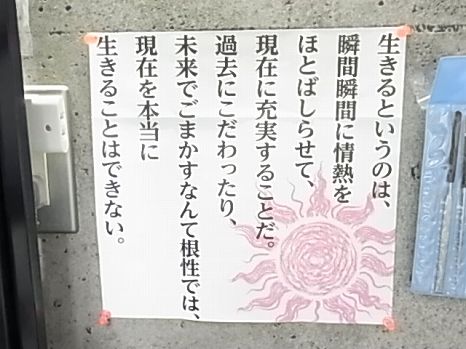 生きるというのは、
瞬間瞬間に情熱を
ほとばしらせて、
現在に充実することだ。
過去にこだわったり、
未来でごまかすなんて根性では、
現在を本当に
生きることはできない。